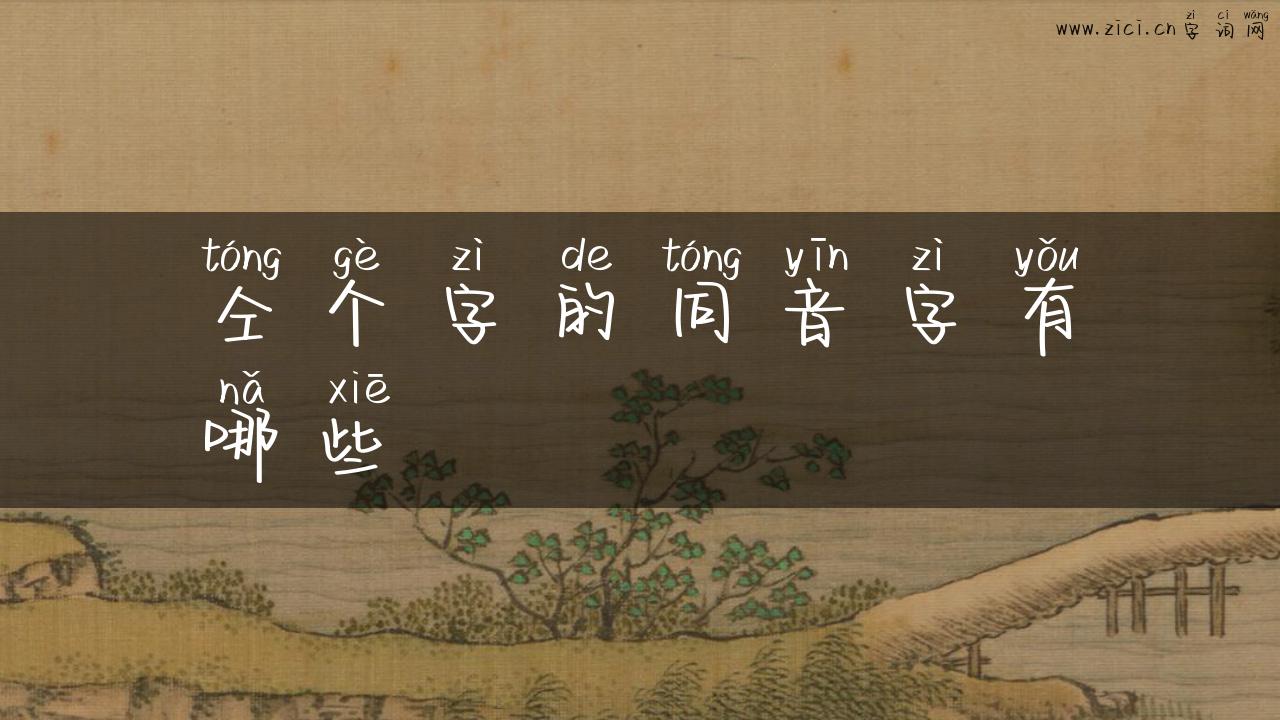 zì cí wǎng
www.zici.cn 字 词 网
tóng gè zì de tóng yīn zì yǒu
仝 个 字 的 同 音 字 有
nǎ xiē
哪 些